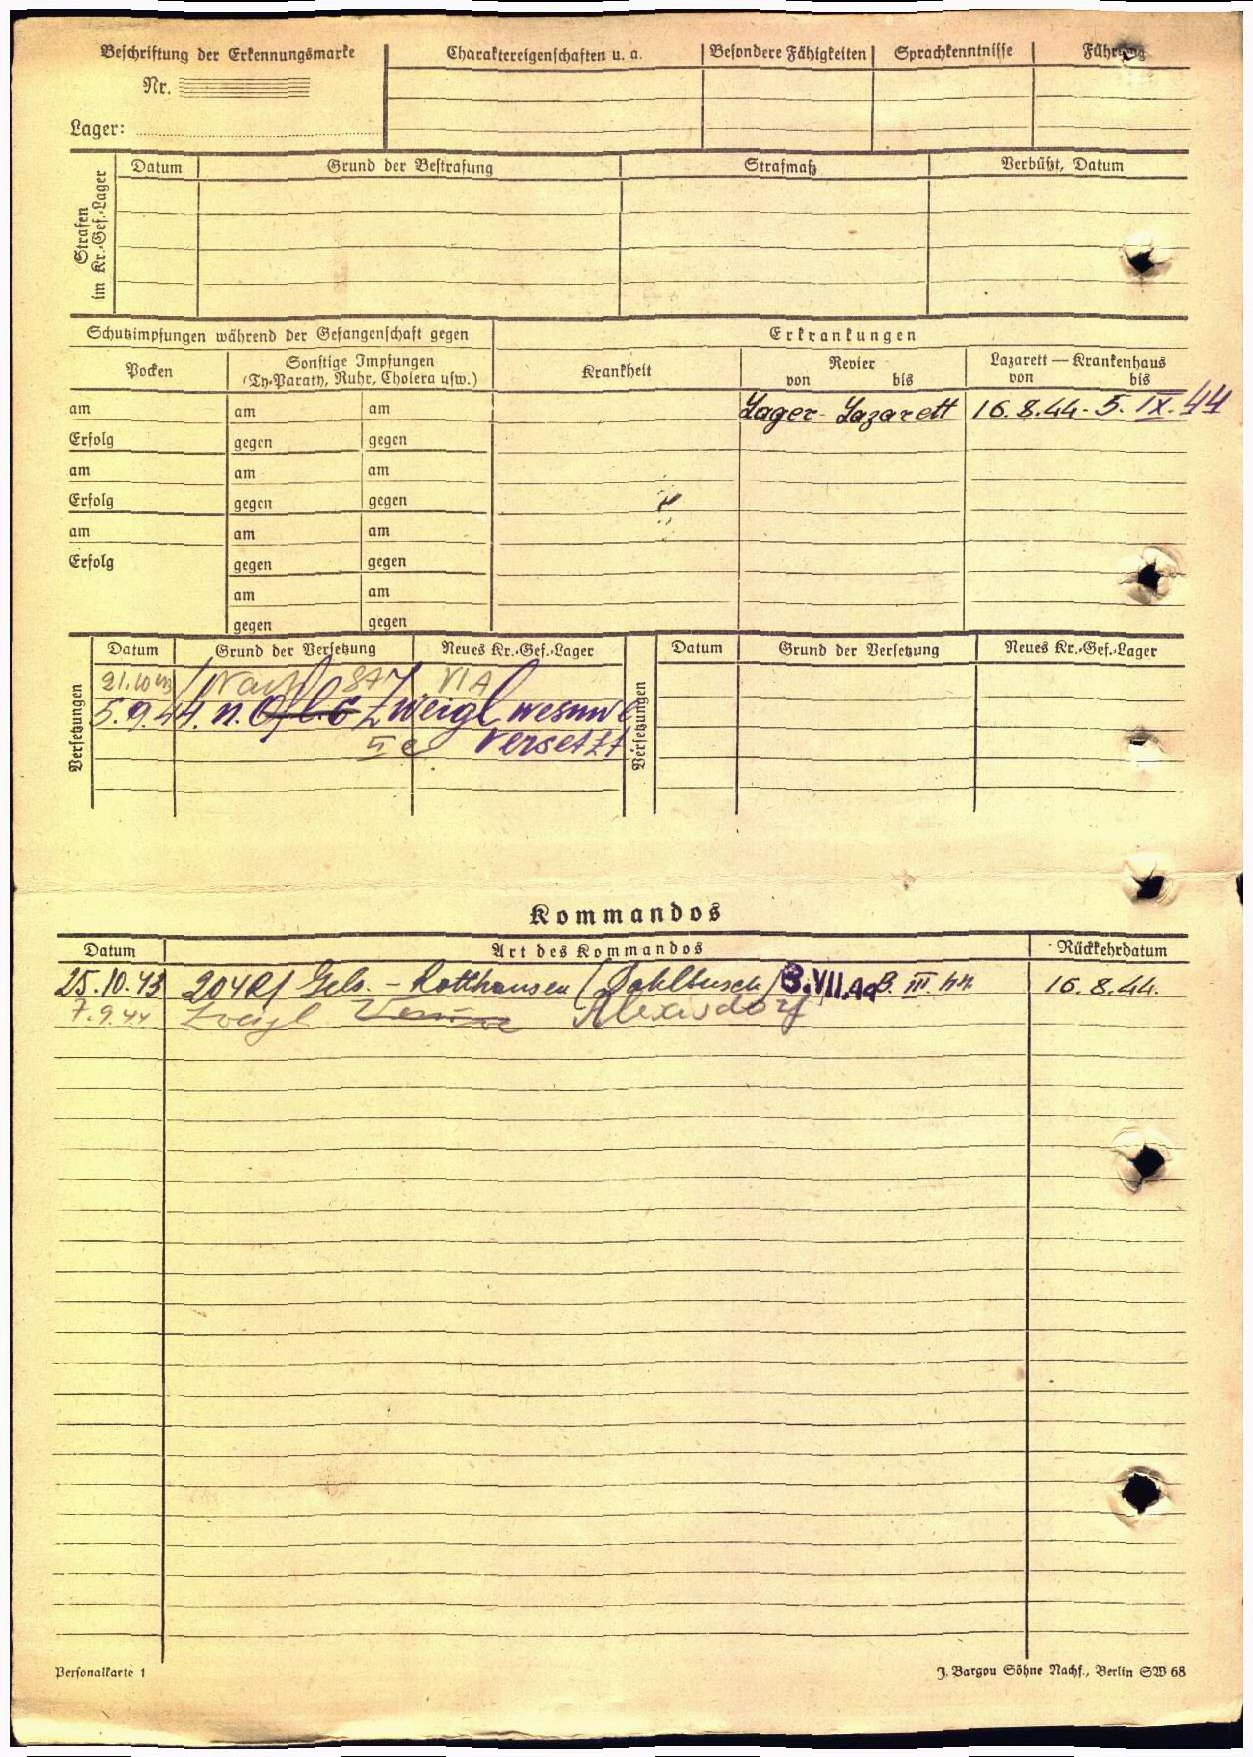 Beschriftung der Erkennungsmarke
Nr.
Lager:
Charaktereigenschaften u. a.
Besondere Fähigkeiten
Sprachkenntnisse
Führung
Strafen
im Kr.-Gef.-Lager
Datum
Grund der Bestrafung
Strafmaß
Verbüßt, Datum
Schutzimpfungen während der Gefangenschaft gegen
Erkrankungen
Pocken
Sonstige Impfungen
(Ty-Paraty, Ruhr, Cholera usw.)
Krankheit
Revier
von bis
Lazarett — Krankenhaus
von bis
am am am
Lager-Lazarett 16.8.44- 5. IX. 44
Erfolg gegen gegen
am am am
Erfolg gegen gegen
am am am
Erfolg gegen gegen
am am
gegen gegen
Versetzungen
Datum Grund der Versetzung Neues Kr.-Gef.-Lager
21.10.43 Nach VI A
5.9.44. n. Zweigl
VI C versetzt.
Versetzungen
Datum Grund der Versetzung Neues Kr.-Gef.-Lager
Kommandos
Datum Art des Kommandos Rückkehrdatum
25.10.43 204 R/ Gels. - Rotthausen (Dahlbusch) 3.VII.44 3. III. 44. 16.8.44.
7.9.44 Zweigl Alexisdorf
Personalkarte 1
J. Bargou Söhne Nachf., Berlin SW 68